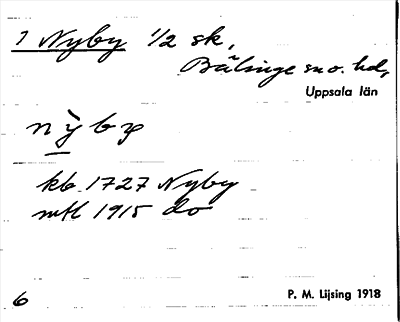 1 Nyby 1/2 sk,
Bälinge sn o. hd,
Uppsala län
nỳby
kb. 1727 Nyby
mtl 1915 do
6
P. M. Lijsing 1918